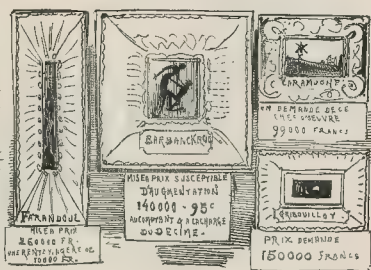 FARANDOUL
MISE A PRIX
260000 FR.
UNE RENTE VIAGÈRE DE
10000 FR.
BARBANCKROD
MISE A PRIX SUSCEPTIBLE
D'AUGMENTATION
140000 - 95c
AU COMPTANT & A LA CHARGE
DU DÉCIME.
CARAMJONE
ON DEMANDE DE CE
CHEF D'OEUVRE
99000 FRANCS
GRIBOUILLOT
PRIX DEMANDÉ
150000 FRANCS